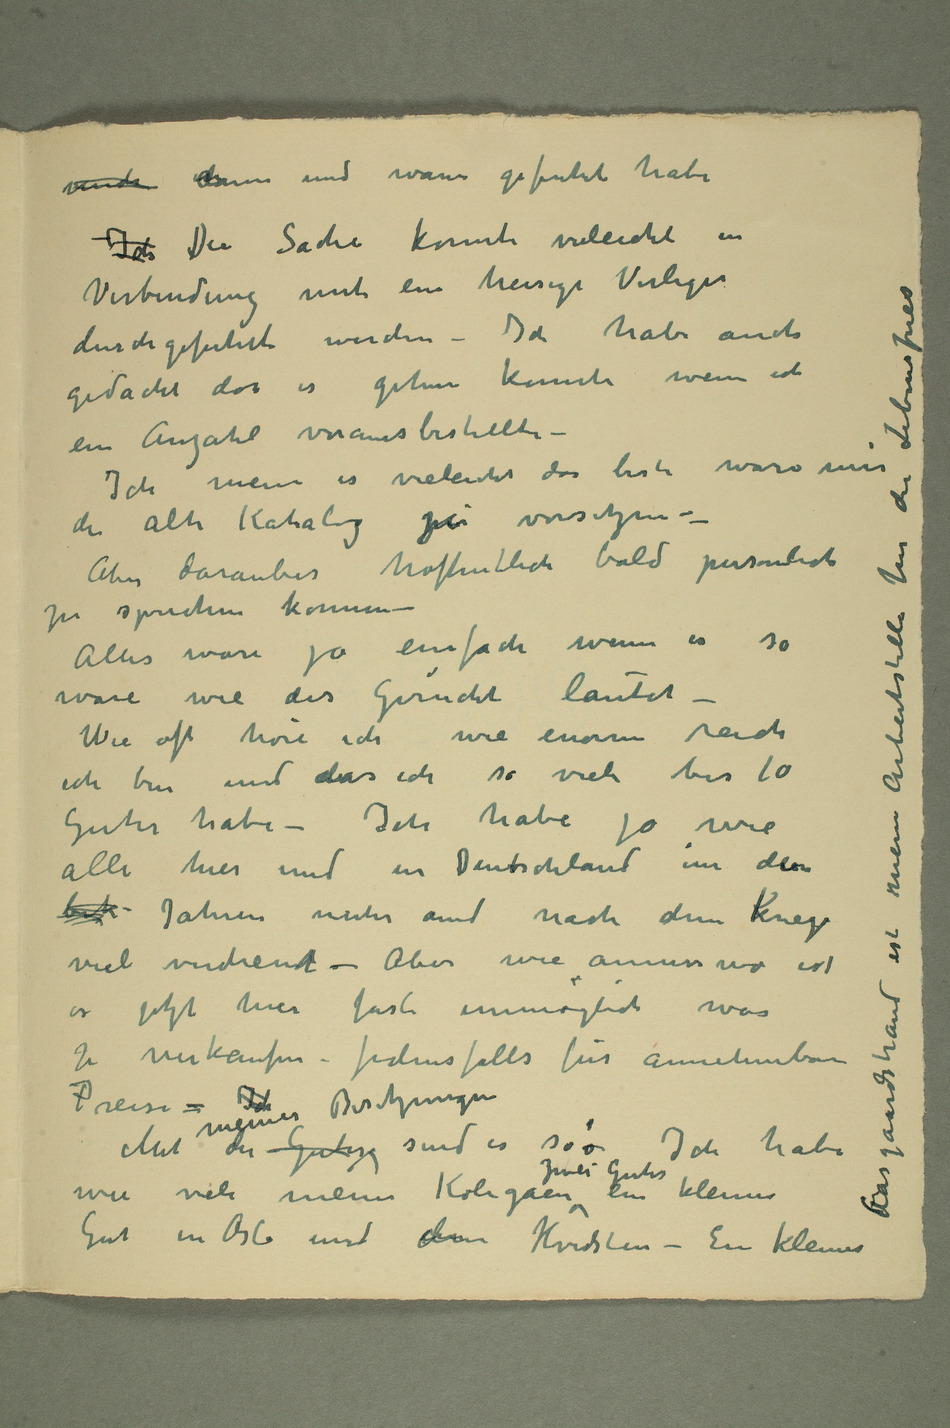 dann und wann gefeilt habe
Ich Die Sache konnte vieleicht in
Verbindung mit ein heisige Verleger
durchgefuhrt werden – Ich habe auch
gedacht das es gehen konnte wenn ich
ein Anzahl vorausbestellte –
Ich meine es vieleicht das beste ware mir
die alte Katalog zu vorsetzen –
Aber daruber hoffentlich bald personlich
zu sprechen konnen –
Alles ware ja einfach wenn es so
ware wie das Gerücht lautet –
Wie oft höre ich wie enorm reich
ich bin und das ich so viele bis 10
Guter habe – Ich habe ja wie
alle hier und in Deutschland in den
Jahren unter und nach dem Kriege
viel verdient – Aber wie anderswo ist
es jetzt hier fast unmöglich was
zu verkaufen – jedensfalls für annehmbare
Preise – Ich
Mit die Guter meiner Besitzungen sind es so: Ich habe
wie viele meiner Kolegaen zwei Guter ein kleines
Gut in Oslo und dem Hvidsten – Ein kleines
Aasgaardstrand ist meine Arbeitstelle für die Lebensfries